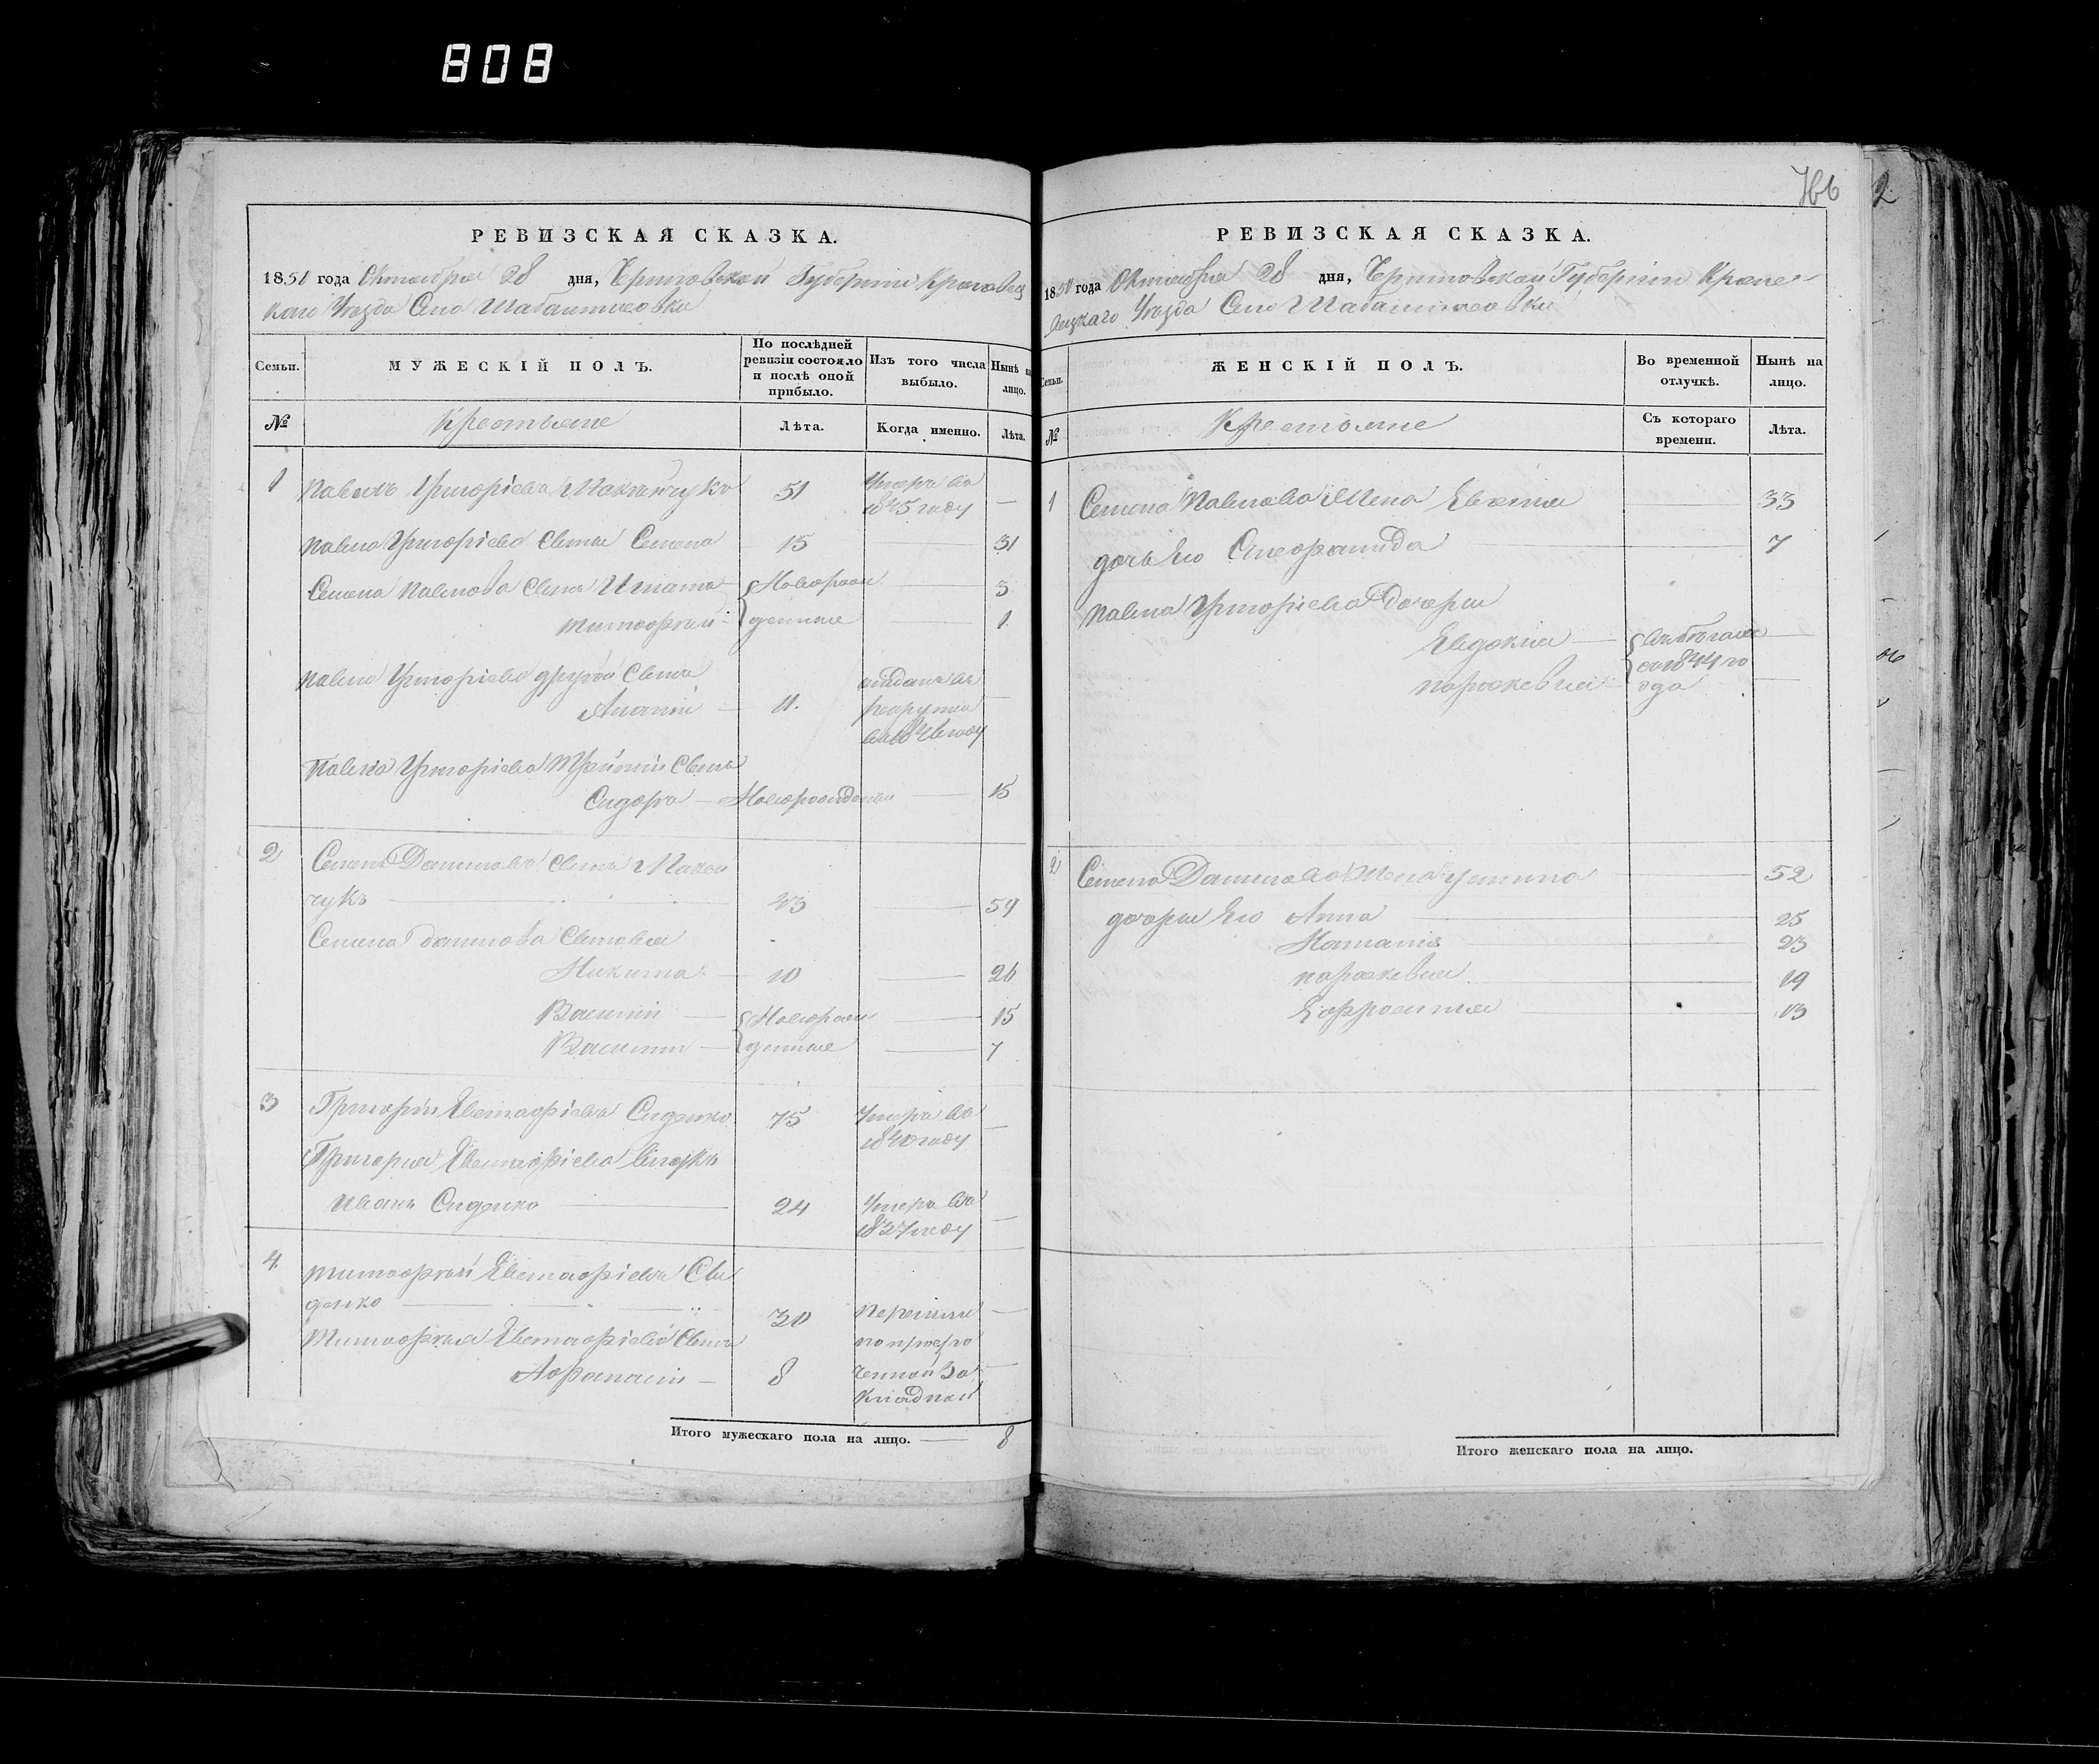 808
766
2
РЕВИЗСКАЯ СКАЗКА.
1850 года Октября 28 дня, Черниговской Губернiи Кролевец
каго Уезда Села Шабалтасовки
Семьи.
МУЖЕСКIЙ ПОЛЪ.
По послѣдней ревизiи состояло и послѣ оной прибыло.
Изъ того числа выбыло.
Нынѣ на лицо.
№
Крестьяне
Лѣта.
Когда именно.
Лѣта.
1 Павелъ Григорiевъ 51 Умеръ въ 1845 году —
Павла Григорiева Сынъ Семенъ 15 — 31
Семена Павлова Сынъ Игнатъ Новорож — 3
Тимофей денные — 1
Павла Григорiева другой Сынъ
Ананiй — 11. отданъ въ рекруты году —
Павла Григорiева Третiй Сынъ
Сидоръ — Новорожденъ — 15
2 Семенъ Даниловъ Сынъ
чукъ — 43 — 59
Семена Данилова Сыновья
Никита — 10 — 26
Василiй — Новорож — 15
Василiй — денные — 7
3 Григорiй Евстафiевъ Сиденко 75 Умеръ въ 1840 году —
Григорiя Евстафiева Внукъ
Иванъ Сиденко — 24 Умеръ въ 1837 году —
4. Тимофей Евстафiевъ Си
денко — 30 —
Тимофея Евстафiева Сынъ
Афанасiй — 8 —
по просро
ченной За
кладной
Итого мужескаго пола на лицо. — 8
РЕВИЗСКАЯ СКАЗКА.
1850 года Октября 28 дня, Черниговской Губернiи Кроле
вецкаго Уезда Села Шабалтасовки
Семьи.
ЖЕНСКIЙ ПОЛЪ.
Во временной отлучкѣ.
Нынѣ на лицо.
№
Крестьяне
Съ котораго времени.
Лѣта.
1 Семена Павлова Жена Евгенiя — 33
дочь Его — 7
Павла Григорiева Дочери
Евдокiя — въ бегахъ —
Параскевiя — съ 1844 го года —
2 Семена Данилова Жена Устина — 52
дочери Его Анна — 25
Наталiя — 23
Параскевiя — 19
Ефросинiя — 13
Итого женскаго пола на лицо.